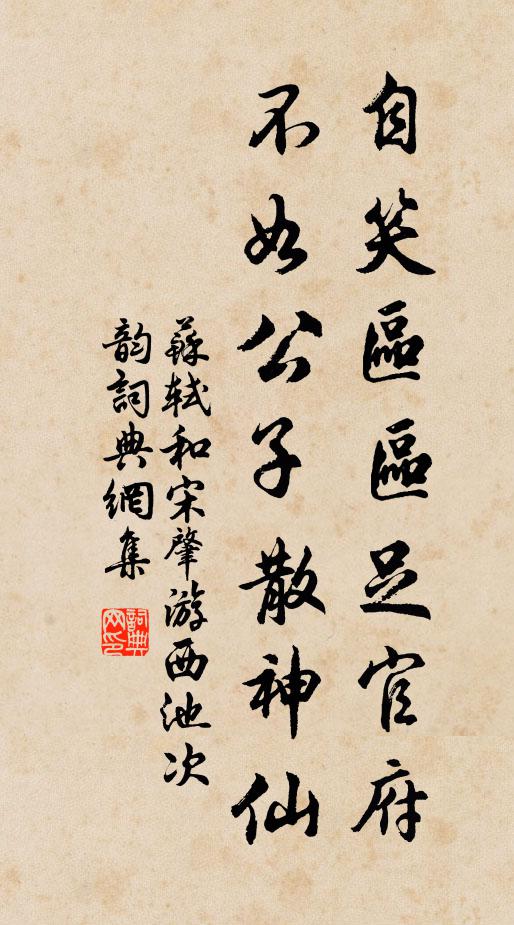 自笑區區足官府
不如公子散神仙
蘇軾和宋肇游西池次
韵詞典網集
詞典
网印